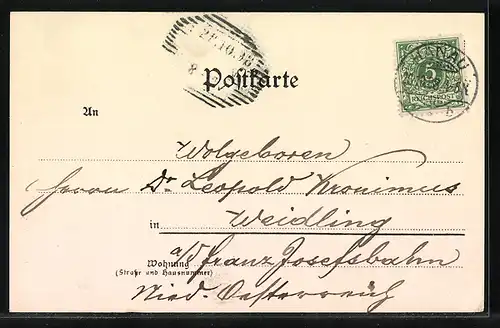 21.10.98
8
Postkarte
HANAU
5
REICHSPOST
An
Wolgeboren
Herrn Dr. Leopold Kronimus
in
Weidling
a/d franz Josefsbahn
Wohnung
(Straße und Hausnummer)
Nied. Oesterreich